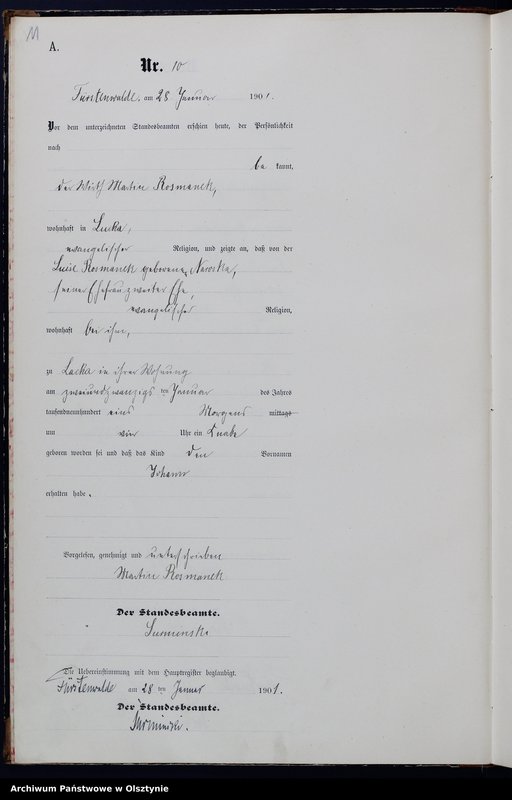 A.
Nr. 10
Fürstenwalde, am 28 Januar 1901.
Vor dem unterzeichneten Standesbeamten erschien heute, der Persönlichkeit
nach
be kannt,
der Wirth Martin Rosmanek,
wohnhaft in Lucka,
evangelischer Religion, und zeigte an, daß von der
Luise Rosmanek geborene
seiner Ehefrau zweiter Ehe,
evangelischer Religion,
wohnhaft bei ihm,
zu Lucka in ihrer Wohnung
am zweiundzwanzigsten Januar des Jahres
tausendneunhundert eins Morgens mittags
um vier Uhr ein Knabe
geboren worden sei und daß das Kind den Vornamen
Johann
erhalten habe.
Vorgelesen, genehmigt und unterschrieben
Martin Rosmanek
Der Standesbeamte.
Die Uebereinstimmung mit dem Hauptregister beglaubigt.
Fürstenwalde am 28 ten Januar 1901.
Der Standesbeamte.
Archiwum Państwowe w Olsztynie